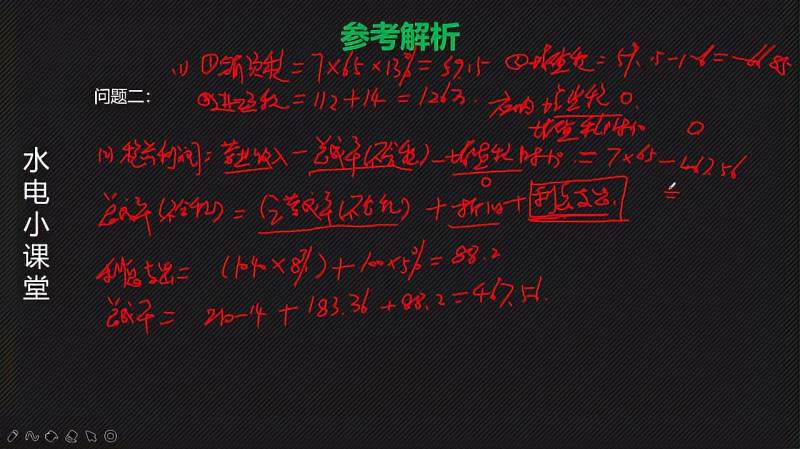 参考解析
(1) ①销项税=7×65×13%=59.15 ③增值税=59.15-126=-66.85
问题二: ②进项税=112+14=126万. 应纳增值税 0.
增值税附加 0
水电小课堂
(1) 税前利润=营业收入-总成本(不含税)-增值税附加=7×65-467.56
0 =
总成本(不含税)=经营成本(不含税)+折旧+利息支出.
利息支出=(1040×8%)+100×5%=88.2
总成本=210-14+183.36+88.2=467.56.